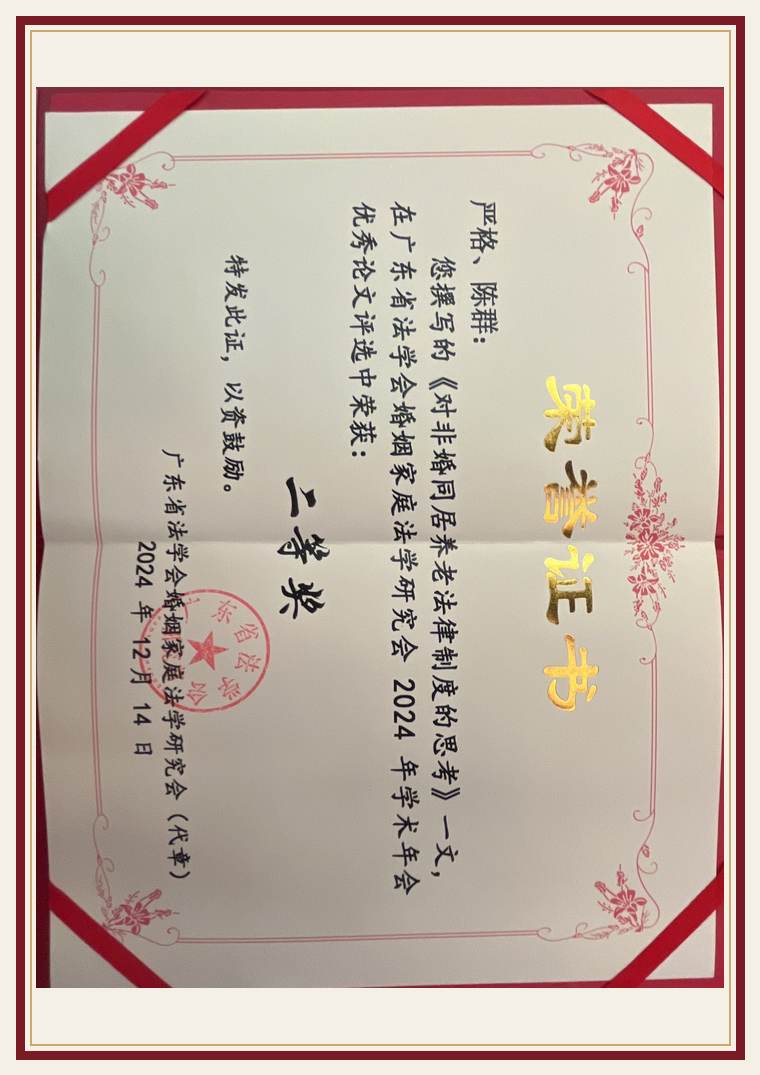 荣誉证书
严格、陈群：
您撰写的《对非婚同居养老法律制度的思考》一文，
在广东省法学会婚姻家庭法学研究会 2024 年学术年会
优秀论文评选中荣获：
二等奖
特发此证，以资鼓励。
广东省法学会婚姻家庭法学研究会（代章）
2024 年 12 月 14 日
东省法学会